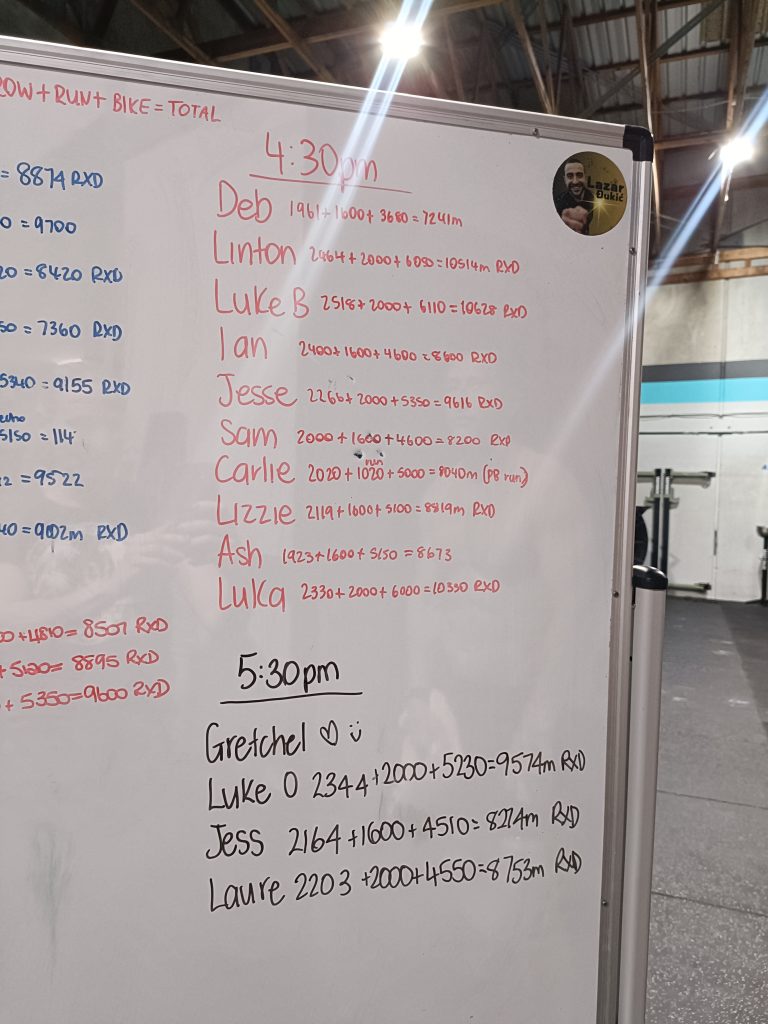 ROW+RUN+ BIKE = TOTAL
= 8874 RXD
0 = 9700
20 = 8420 RXD
50 = 7360 RXD
5340 = 9155 RXD
5150 = 114
12 = 9522
40 = 9002m RXD
00 + 4810 = 8507 RXD
+ 5120 = 8895 RXD
+ 5350 = 9600 RXD
4:30pm
Deb 1961 + 1600 + 3680 = 7241m
Linton 2464 + 2000 + 6050 = 10514m RXD
Luke B 2518 + 2000 + 6110 = 10628 RXD
Ian 2400 + 1600 + 4600 = 8600 RXD
Jesse 2266 + 2000 + 5350 = 9616 RXD
Sam 2000 + 1600 + 4600 = 8200 RXD
run
Carlie 2020 + 1020 + 5000 = 8040m (PB run)
Lizzie 2119 + 1600 + 5100 = 8819m RXD
Ash 1923 + 1600 + 5150 = 8673
Luka 2330 + 2000 + 6000 = 10330 RXD
5:30pm
Gretchel ♡ ü
Luke O 2344 + 2000 + 5230 = 9574m RXD
Jess 2164 + 1600 + 4510 = 8274m RXD
Laure 2203 + 2000 + 4550 = 8753m RXD
Lazar
Đukić